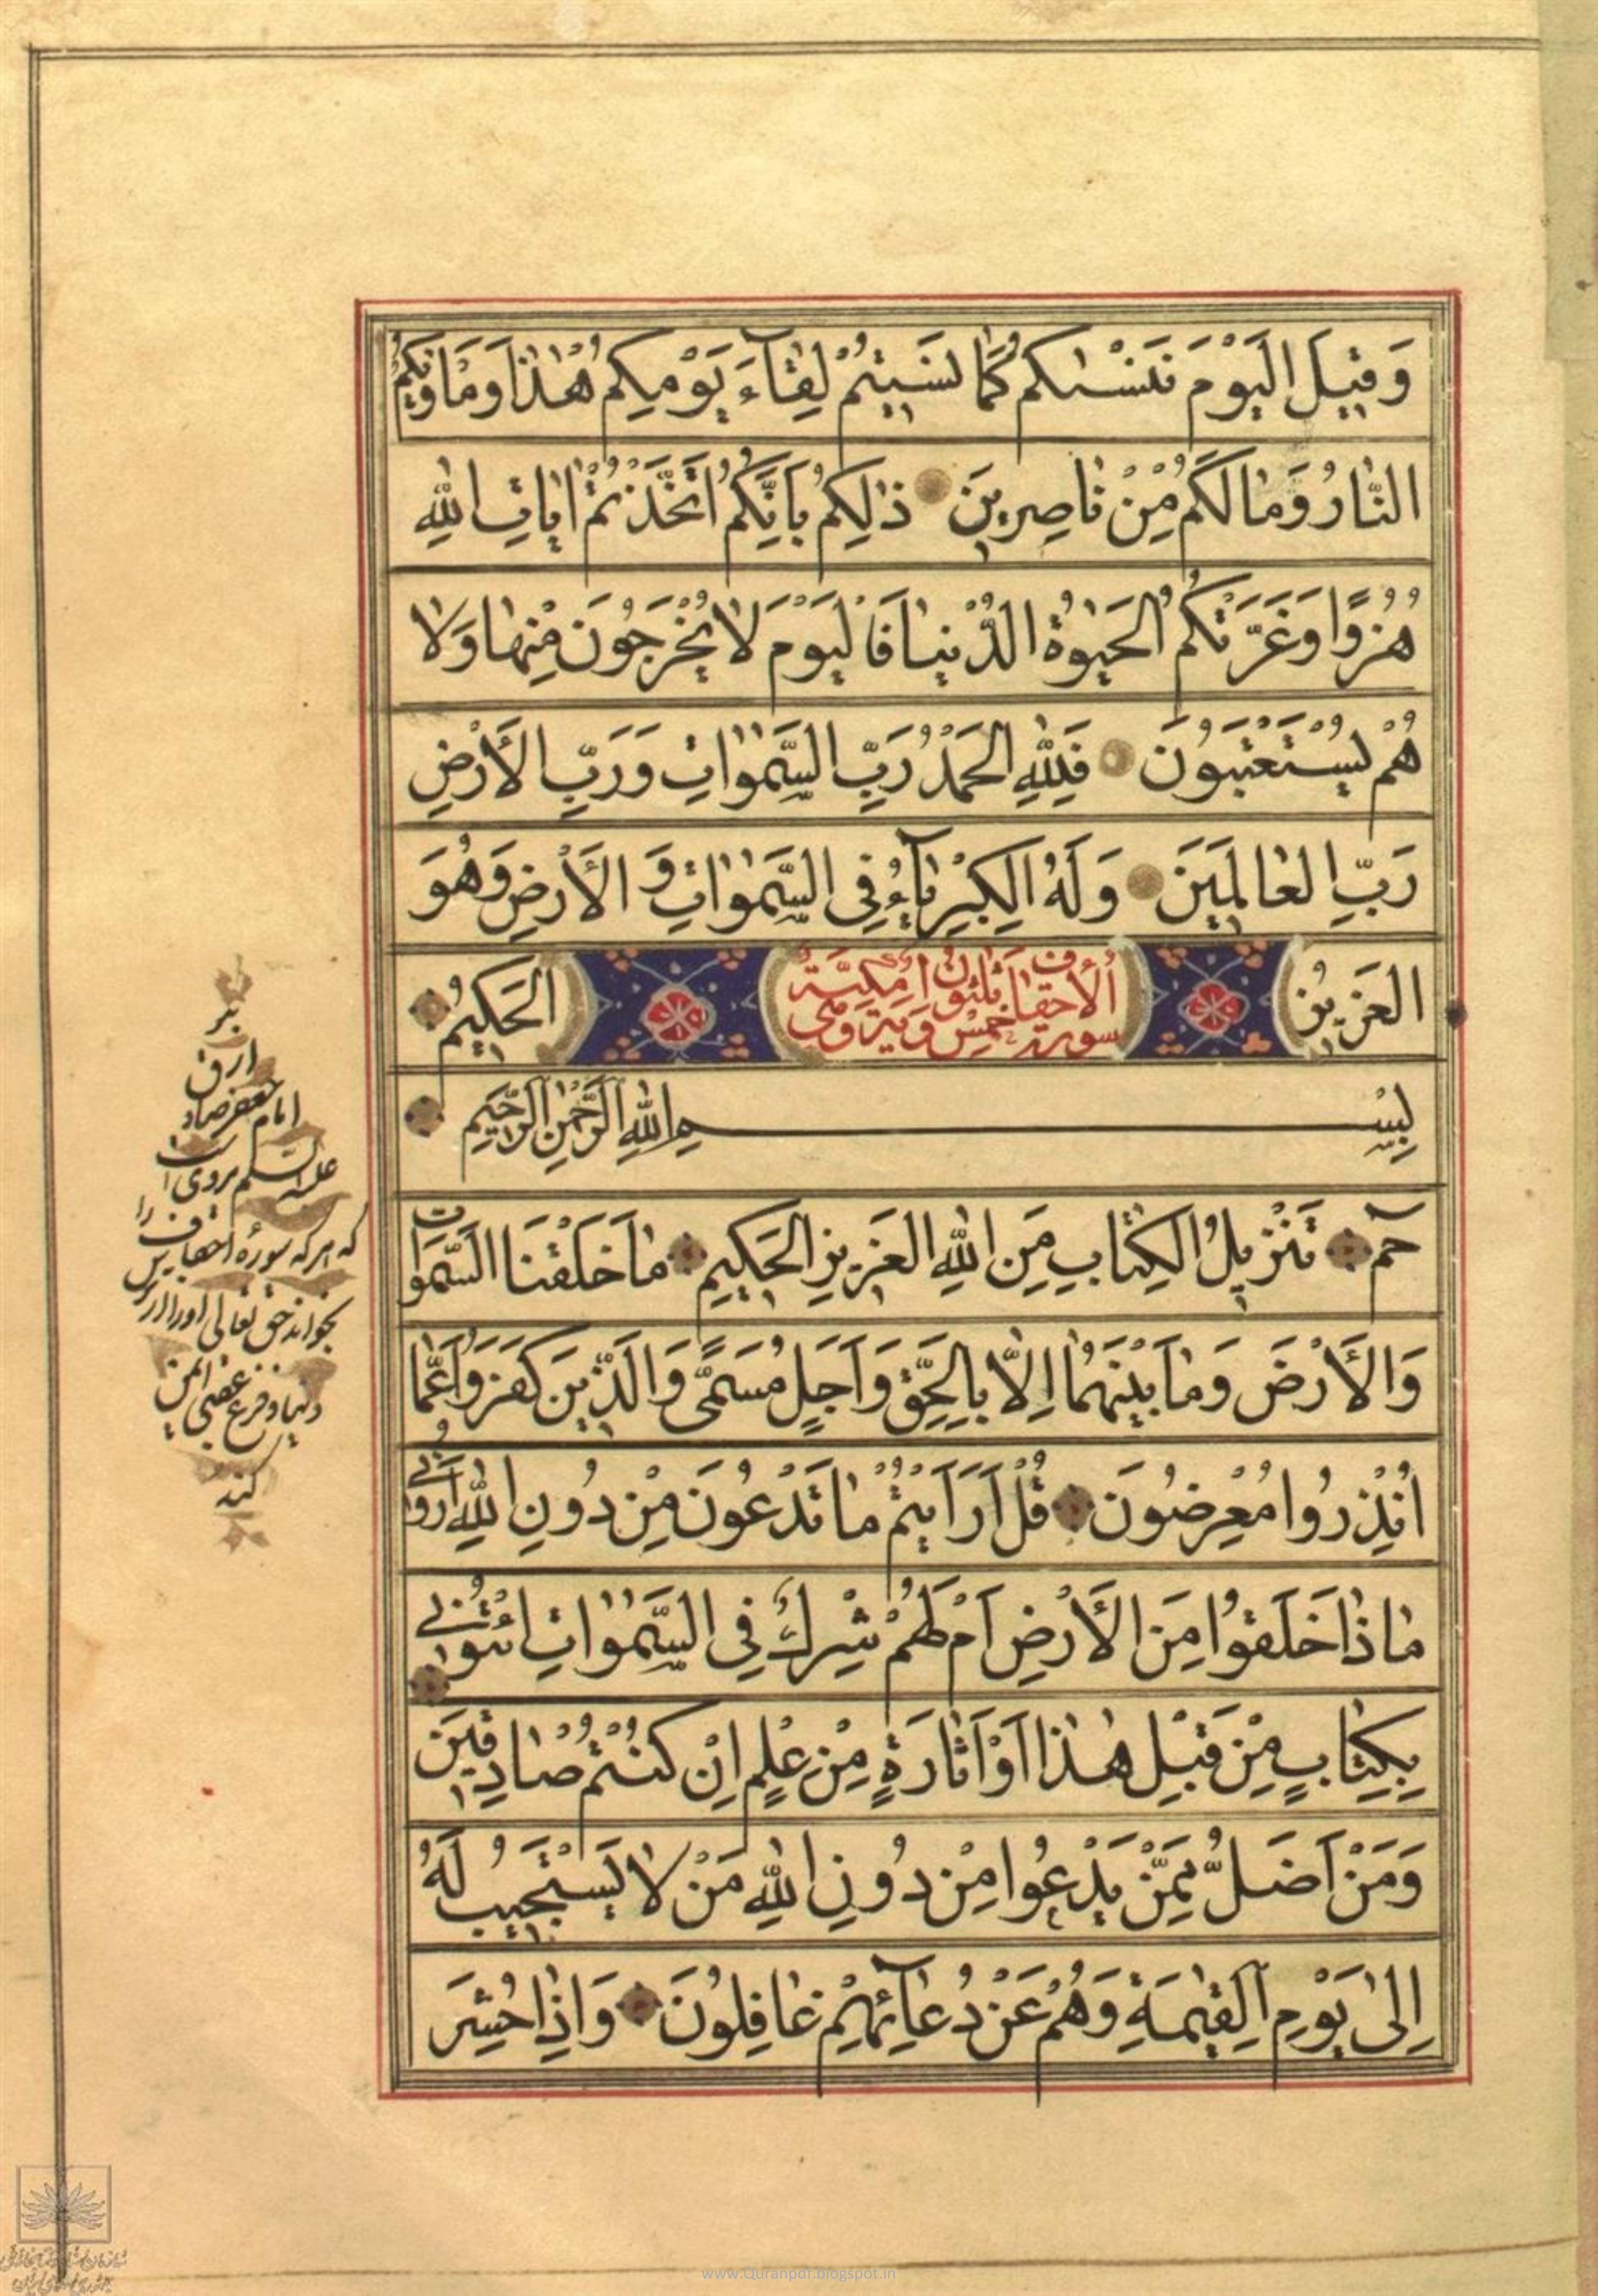 وَقِيلَ الْيَوْمَ نَنْسٰىكُمْ كَمٰا نَسِيتُمْ لِقٰآءَ يَوْمِكُمْ هٰذٰا وَمَأْوٰيكُمُ
النّٰارُ وَمٰا لَكُمْ مِنْ نٰاصِرِينَ ذٰلِكُمْ بِاَنَّكُمُ اتَّخَذْتُمْ اٰيٰاتِ اللّٰهِ
هُزُوًا وَغَرَّتْكُمُ الْحَيٰوةُ الدُّنْيٰا فَالْيَوْمَ لٰا يُخْرَجُونَ مِنْهٰا وَلٰا
هُمْ يُسْتَعْتَبُونَ فَلِلّٰهِ الْحَمْدُ رَبِّ السَّمٰوٰاتِ وَرَبِّ الْاَرْضِ
رَبِّ الْعٰالَمِينَ وَلَهُ الْكِبْرِيٰآءُ فِي السَّمٰوٰاتِ وَالْاَرْضِ وَهُوَ
الْعَزِيزُ الْحَكِيمُ
سورة الأحقاف خمس وثلثون اية وهى مكيّة
بِسْمِ اللّٰهِ الرَّحْمٰنِ الرَّحِيمِ
حٰمٓ تَنْزِيلُ الْكِتٰابِ مِنَ اللّٰهِ الْعَزِيزِ الْحَكِيمِ مٰا خَلَقْنَا السَّمٰوٰاتِ
وَالْاَرْضَ وَمٰا بَيْنَهُمٰا اِلّٰا بِالْحَقِّ وَاَجَلٍ مُسَمًّى وَالَّذِينَ كَفَرُوا عَمّٰا
اُنْذِرُوا مُعْرِضُونَ قُلْ اَرَاَيْتُمْ مٰا تَدْعُونَ مِنْ دُونِ اللّٰهِ اَرُونِي
مٰاذٰا خَلَقُوا مِنَ الْاَرْضِ اَمْ لَهُمْ شِرْكٌ فِي السَّمٰوٰاتِ ائْتُونِي
بِكِتٰابٍ مِنْ قَبْلِ هٰذٰا اَوْ اَثٰارَةٍ مِنْ عِلْمٍ اِنْ كُنْتُمْ صٰادِقِينَ
وَمَنْ اَضَلُّ مِمَّنْ يَدْعُوا مِنْ دُونِ اللّٰهِ مَنْ لٰا يَسْتَجِيبُ لَهُ
اِلىٰ يَوْمِ الْقِيٰمَةِ وَهُمْ عَنْ دُعٰآئِهِمْ غٰافِلُونَ وَاِذٰا حُشِرَ
امام جعفر صادق
عليه السلم مروى است
كه هر كه سورۀ احقاف را
بخواند حق تعالى اورا از ترس
دنيا و فزع عقبى ايمن
كند
www.Quranpdf.blogspot.in